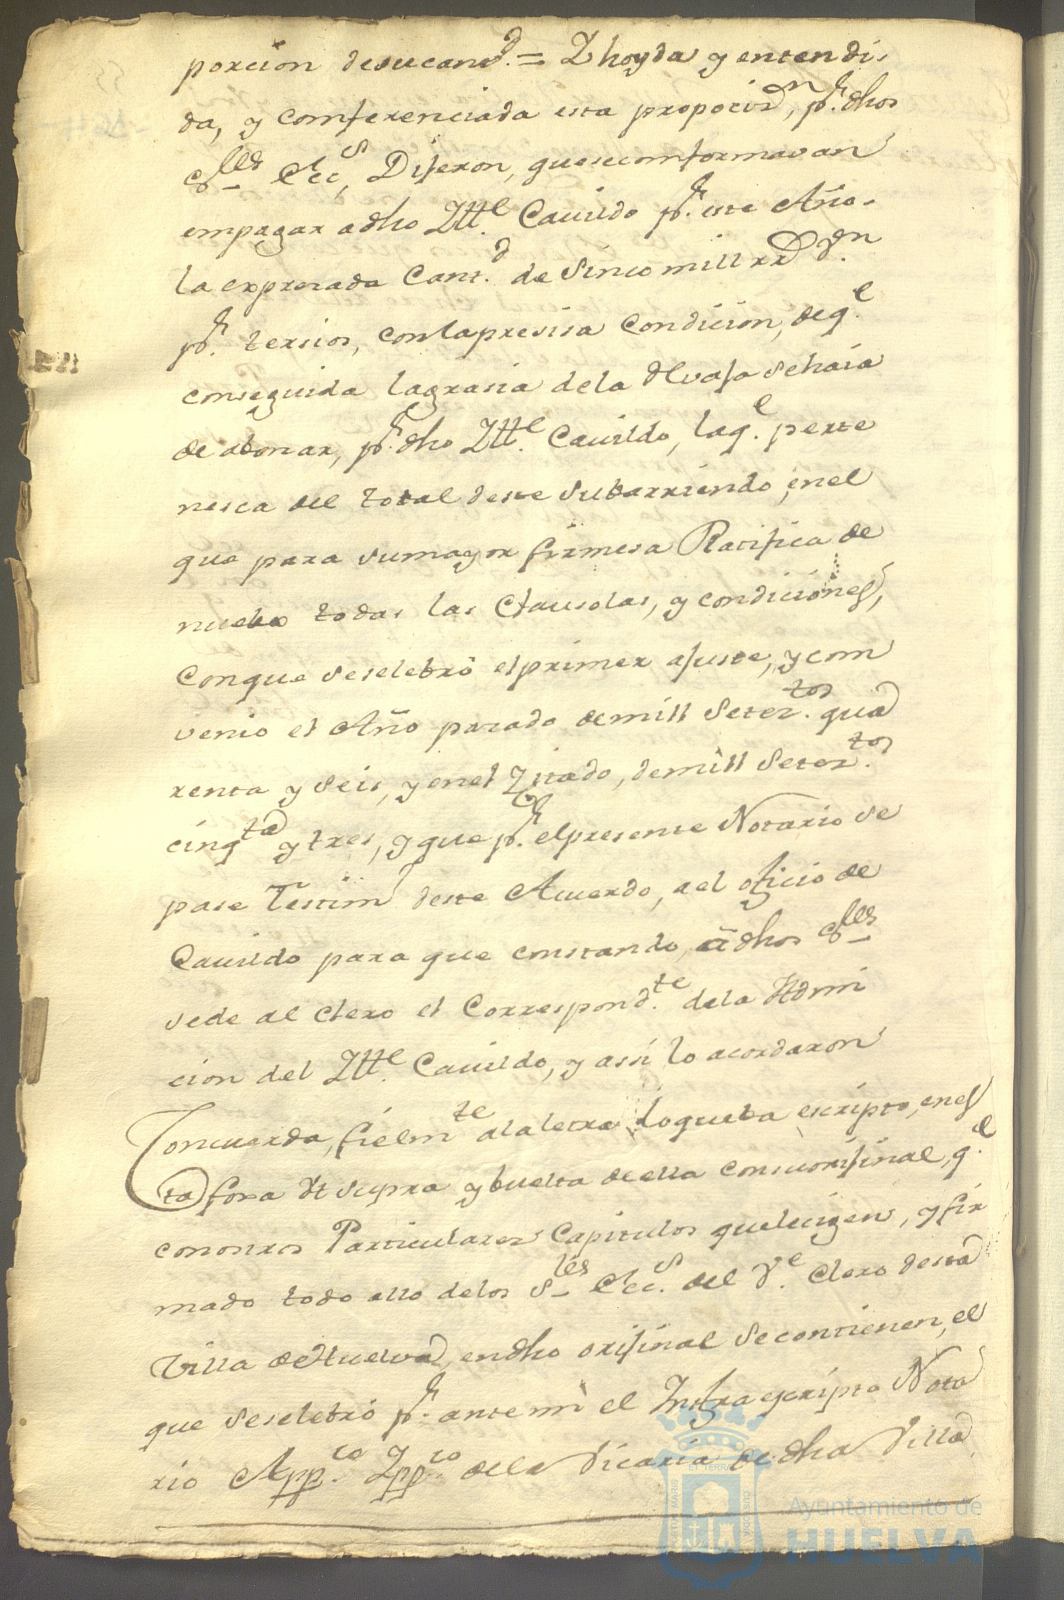 porcion desucantd. = Y hoyda y entendi-
da, y comferenciada esta propocion, pr. dhos
Sres Ecc.s, Dijeron, queseconformavan
empagar adho Ylle. Cavildo pr. este Año.
la expresada Cantd. de Sinco mill rrs Vn
pr. tersios, conlapresisa condicion, deqe.
conseguida lagrasia dela Rvaja sehaia
de abonar, pr. dho Ylle. Cavildo, laqe. perte
nesca del total deste subarriendo, enel
que para sumayor firmesa Ratifica de
nuebo todas las Clausolas, y condiciones,
Conque seselebró elprimer ajuste, y com
venio el Año pasado demill Setez.tos qua
renta y seis, y enel Zitado, demill Setez.tos
cinqta y tres, y que pr. elpresente Notario se
pase Testimo deste Acuerdo, ael oficio de
Cavildo para que constando, â dhos Sres
sede al clero el Correspondte. dela Admi
cion del Ylle. Cavildo, y assi lo acordaron
Concuerda, fielmte alaletra loqueba escripto, enes
ta foxa Ut supra y buelta de ella consuorijinal, qe.
conotros Particulares Capitulos queleigen, y fir
mado todo ello delos Sres Ecc.s del Ve. Clero desta
Villa de Huelva, endho orijinal secontienen, el
que seselebró pr. antemi el Ynfraescripto Nota
rio Appco. Yppco. dela Vicaria de dha Villa
Ayuntamiento de
HUELVA